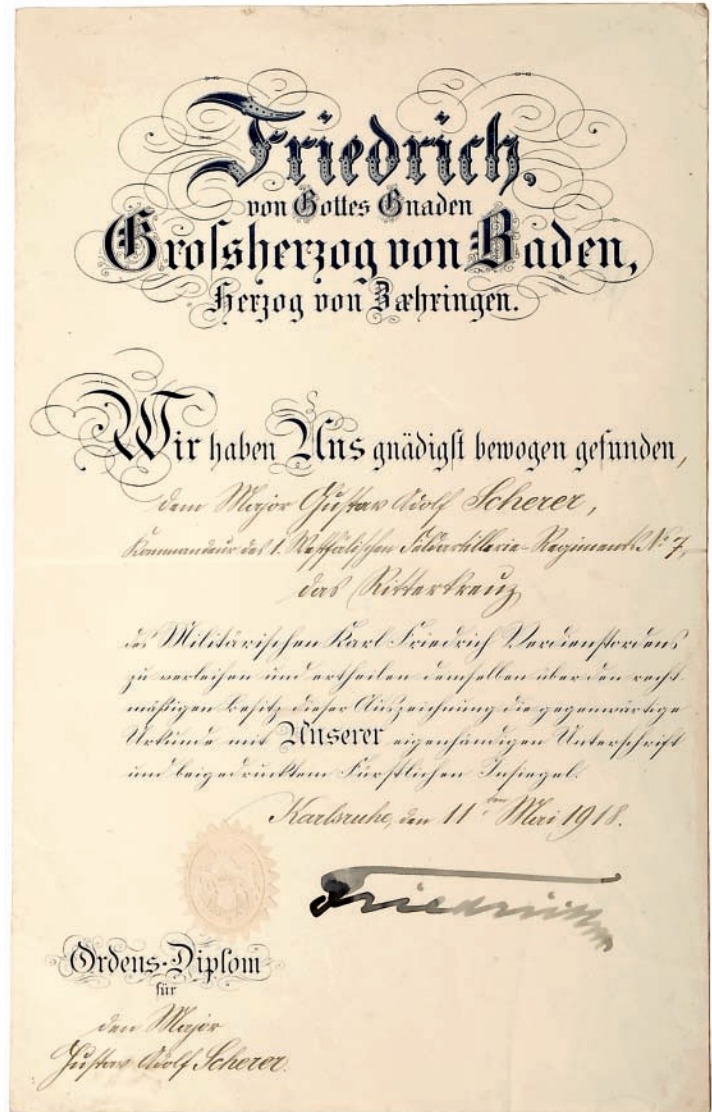 Friedrich,
von Gottes Gnaden
Grofsherzog von Baden,
Herzog von Zæhringen.
Wir haben Uns gnädigst bewogen gefunden,
dem Major Gustav Adolf Scherer,
Kommandeur des 1. Westfälischen Feldartillerie-Regiments No 7,
das Ritterkreuz
des Militärischen Karl Friedrich Verdienstordens
zu verleihen und ertheilen demselben über den recht-
mäßigen Besitz dieser Auszeichnung die gegenwärtige
Urkunde mit Unserer eigenhändigen Unterschrift
und beigedrucktem Fürstlichen Insiegel.
Karlsruhe, den 11ten Mai 1918.
Friedrich
Ordens-Diplom
für
den Major
Gustav Adolf Scherer.